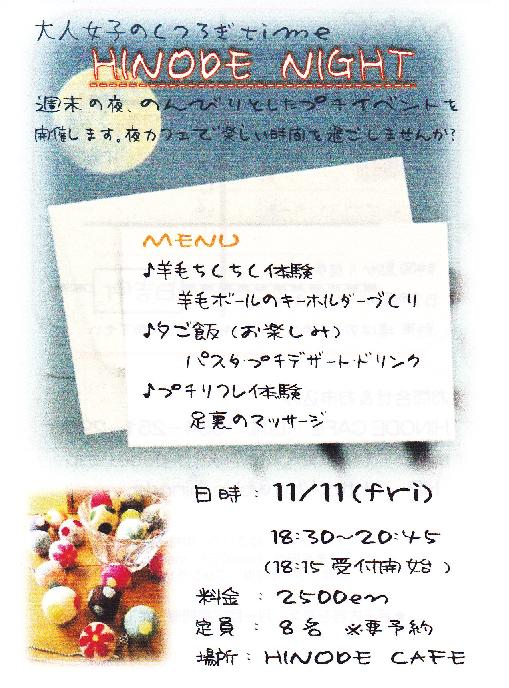 大人女子のくつろぎtime
HINODE NIGHT
週末の夜、のんびりとしたプチイベントを
開催します。夜カフェで楽しい時間を過ごしませんか?
MENU
♪羊毛ちくちく体験
羊毛ボールのキーホルダーづくり
♪夕ご飯(お楽しみ)
パスタ・プチデザート・ドリンク
♪プチリフレ体験
足裏のマッサージ
日時: 11/11(fri)
18:30~20:45
(18:15 受付開始)
料金: 2500en
定員: 8名 ※要予約
場所: HINODE CAFE